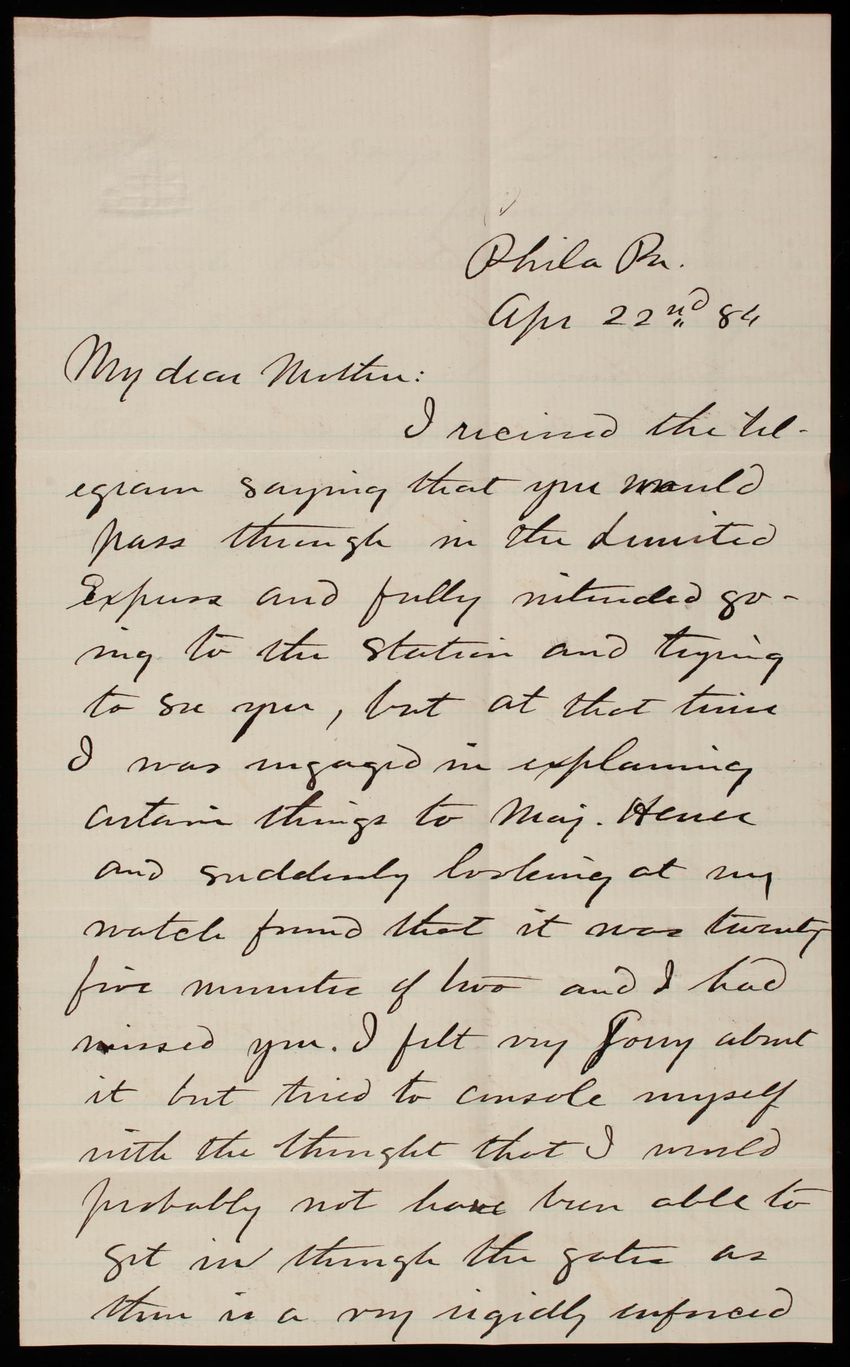 Phila Pa.
Apr 22nd 84
My dear Mother:
I received the tel-
egram saying that you would
pass through in the Limited
Express and fully intended go-
ing to the station and trying
to see you, but at that time
I was engaged in explaining
certain things to Maj. Heuer
and suddenly looking at my
watch found that it was twenty
five minutes of two and I had
missed you. I felt very Sorry about
it but tried to console myself
with the thought that I would
probably not have been able to
get in through the gates as
there is a very rigidly enforced